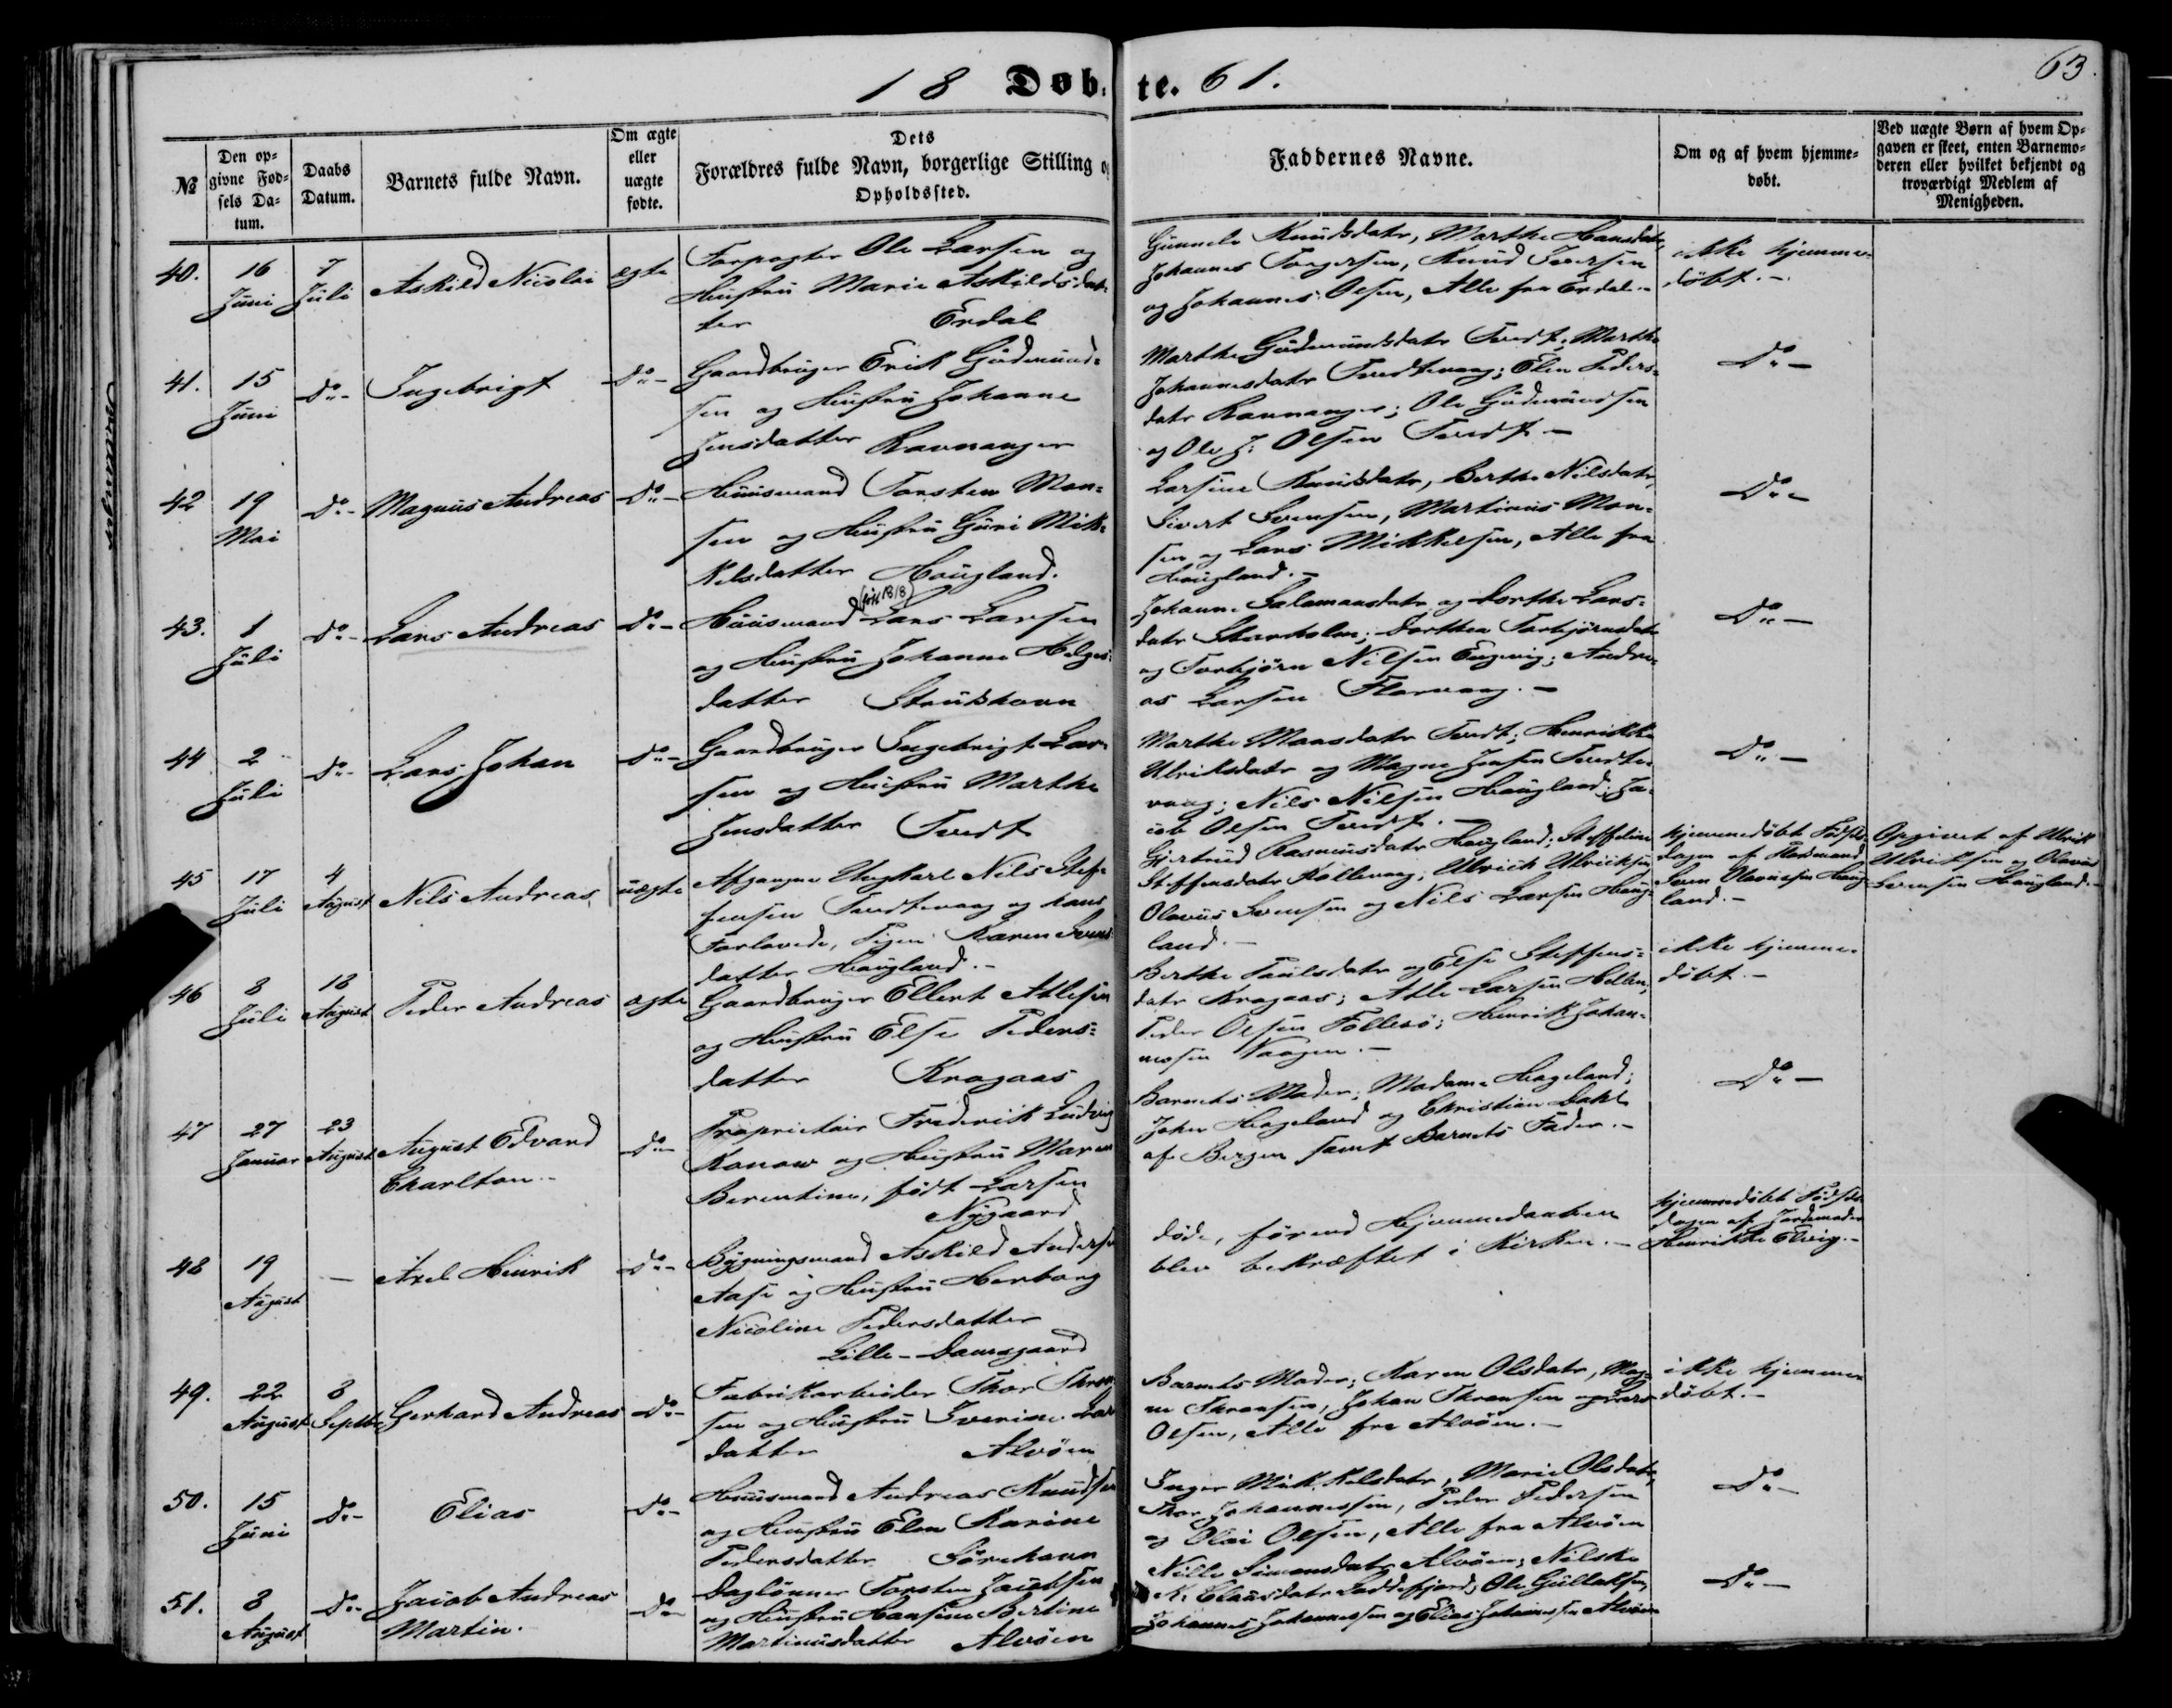 18 Døb-
te. 61.
63.
№
Den op-
givne Fød-
sels Da-
tum.
Daabs
Datum.
Barnets fulde Navn.
Om ægte
eller
uægte
fødte.
Dets
Forældres fulde Navn, borgerlige Stilling o
Opholdssted.
Faddernes Navne.
Om og af hvem hjemme-
døbt.
Ved uægte Børn af hvem Op-
gaven er skeet, enten Barnemo-
deren eller hvilket bekjendt og
troværdigt Medlem af
Menigheden.
40.
16
Juni
7
Juli
Askild Nicolai
ægte
Forpagter Ole Larsen og
Hustru Marie Askildsdat-
ter Erdal
Gunnele Knudsdatr, Marthe Hansdatr,
Johannes Torgersen, Knud Iversen
og Johannes Olsen, Alle fra Erdal.-
ikke hjemme-
døbt.-
41.
15
Juni
Do-
Ingebrigt
Do-
Gaardbruger Erik Gudmund-
sen og Hustru Johanne
Jensdatter Ravnanger
Marthe Gudmundsdatr Tvedt; Marthe
Johannesdatr Tvedtevaag; Elen Peders-
datr Ravnanger; Ole Gudmundsen
og Ole J. Olsen Tvedt.-
Do-
42
19
Mai
Do-
Magnus Andreas
Do-
Huusmand Torsten Mon-
sen og Hustru Guri Mik-
kelsdatter Hougland.
Larsine Knudsdatr, Berthe Nilsdatr,
Sivert Svensen, Martinus Mon-
sen og Lars Mikkelsen, Alle fra
Hougland.-
Do-
43.
1
Juli
Do-
Lars Andreas
Do-
Huusmand Lars Larsen
og Hustru Johanne Helges-
datter Strudshavn
Johanne Salamonsdatr og Dorthe Lars-
datr ; Dorthea Torbjørnsdatr
og Torbjørn Nilsen Engevig; Andre-
as Larsen Florvaag.-
Do-
44
2
Juli
Do-
Lars Johan
Do-
Gaardbruger Ingebrigt Lar-
sen og Hustru Marthe
Jensdatter Tvedt
Marthe Monsdatr Tvedt; Henrikke
Ulriksdatr og Magne Jensen Tvedte-
vaag; Nils Nilsen Hougland; Ja-
cob Olsen Tvedt.-
Do-
45
17
Juli
4
August
Nils Andreas
uægte
Afgangne Ungkarl Nils Stef-
fensen Tvedtevaag og hans
Forlovede, Pigen Karen Svens-
datter Hougland.-
Gjertrud Rasmusdatr Hougland; Steffeline
Steffensdatr Kollevaag; Ulrich Ulrichsen,
Olavus Svensen og Nils Larsen Houg-
land.-
hjemmedøbt Fødsels-
dagen af Huusmand
Sven Olavussen Houg-
land.-
Opgivet af Ulrik
Ulriksen og Olavus
Svensen Hougland.-
46
8
Juli
18
August
Peder Andreas
ægte
Gaardbruger Ellert Atlesen
og Hustru Else Peders-
datter Kragaas
Berthe Poulsdatr og Else Steffens-
datr Kragaas; Atle Larsen Hetlen,
Peder Olsen Follesø; Henrik Johan-
nesen Vaagen.-
ikke hjemme-
døbt.-
47
27
Januar
23
August
August Edvard
Charlton.-
Do-
Proprietair Frederik Ludvig
Konow og Hustru Maren
Berentine, født Larsen
Nygaard
Barnets Moder; Madame Hageland;
John Hageland og Christian Dahl
af Bergen samt Barnets Fader.-
Do-
48
19
August
-
Axel Henrik
Do-
Bygningsmand Askild Andersen
Aase og Hustru Herborg
Nicoline Pedersdatter
Lille-Damsgaard
døde, førend Hjemmedaaben
blev bekræftet i Kirken.-
hjemmedøbt Fødsels-
dagen af Jordemoder
Henrikke Elvig.-
49.
22
August
8
Septbr
Gerhard Andreas
Do-
Fabrikarbeider Thor Thron-
sen og Hustru Iverine Lars
datter Alvøen
Barnets Moder; Karen Olsdatr, Mag-
ne Thronsen, Johan Thronsen og Lars
Olsen, Alle fra Alvøen.-
ikke hjemme-
døbt.-
50.
15
Juni
Do-
Elias
Do-
Huusmand Andreas Knudsen
og Hustru Elen Karine
Pedersdatter Sørehavn
Inger Mikkelsdatr, Marie Olsdatr,
Thor Johannessen, Peder Pedersen
og Olai Olsen, Alle fra Alvøen
Do-
51.
8
August
Do-
Jacob Andreas
Martin.
Do-
Daglønner Torsten Jacobsen
og Hustru Hansine Bertine
Martinusdatter Alvøen
Nille Simonsdatr Alvøen; Nilske
K. Clausdatr Laddefjord; Ole Gullaksen,
Johannes Johannessen og Elias Johannessen Alvøen
Do-